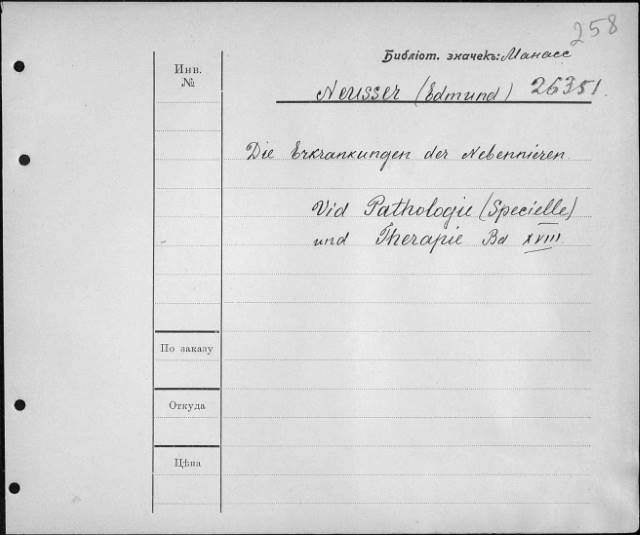 258
Библіот. значекъ: Манасс
Инв.
№
Neusser (Edmund) 26351.
Die Erkrankungen der Nebennieren
Vid Pathologie (Specielle)
und Therapie Bd XVIII.
По заказу
Откуда
Цѣна